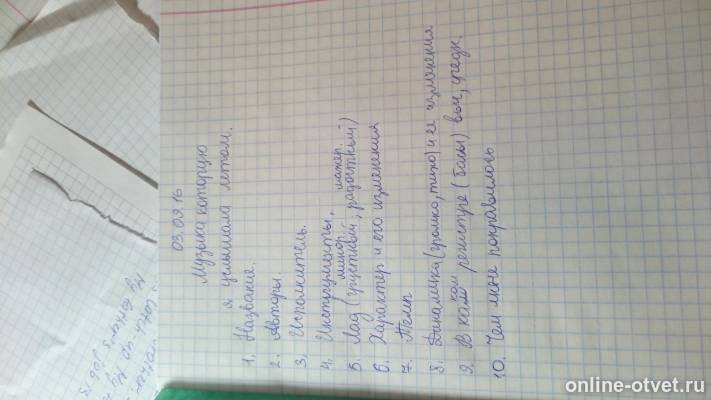 03.09.16
Музыка которую
я услышала летом.
1. Название.
2. Авторы.
3. Исполнитель.
4. Инструменты.
минор. мажор.
5. Лад (грустный; радостный)
6. Характер и его изменения
7. Темп
8. Динамика (громко, тихо) и её изменения
9. В каком регистре (басы) выс, средн.
10. Чем мне понравилось
online-otvet.ru